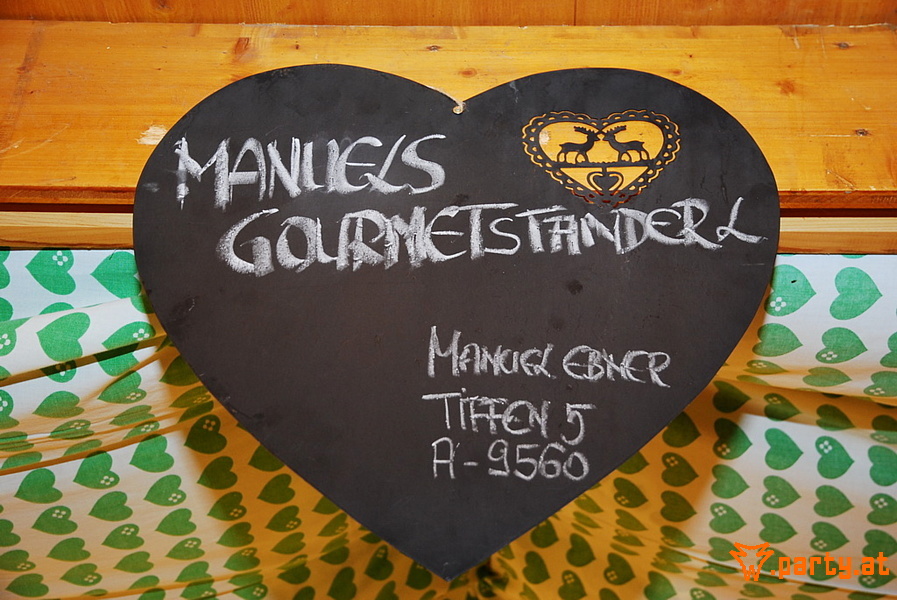 MANUELS
GOURMETSTANDERL
MANUEL EBNER
TIFFEN 5
A-9560
.party.at